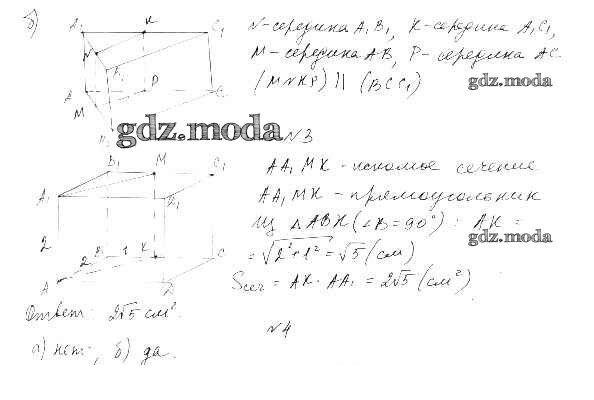 б)
A₁ K C₁
N B₁
A P C
M B
N-середина A₁B₁, K-середина A₁C₁,
M-середина AB, P-середина AC.
(MNKP) || (BCC₁)
gdz.moda
gdz.moda
N3
B₁ M C₁
A₁ D₁
2 B 1 K C
2
A D
AA₁MK-искомое сечение
AA₁MK-прямоугольник
Из △ABK (∠B=90°): AK =
gdz.moda
= √2²+1² = √5 (см)
Sсеч = AK · AA₁ = 2√5 (см²)
Ответ: 2√5 см².
N4
а) нет, б) да.